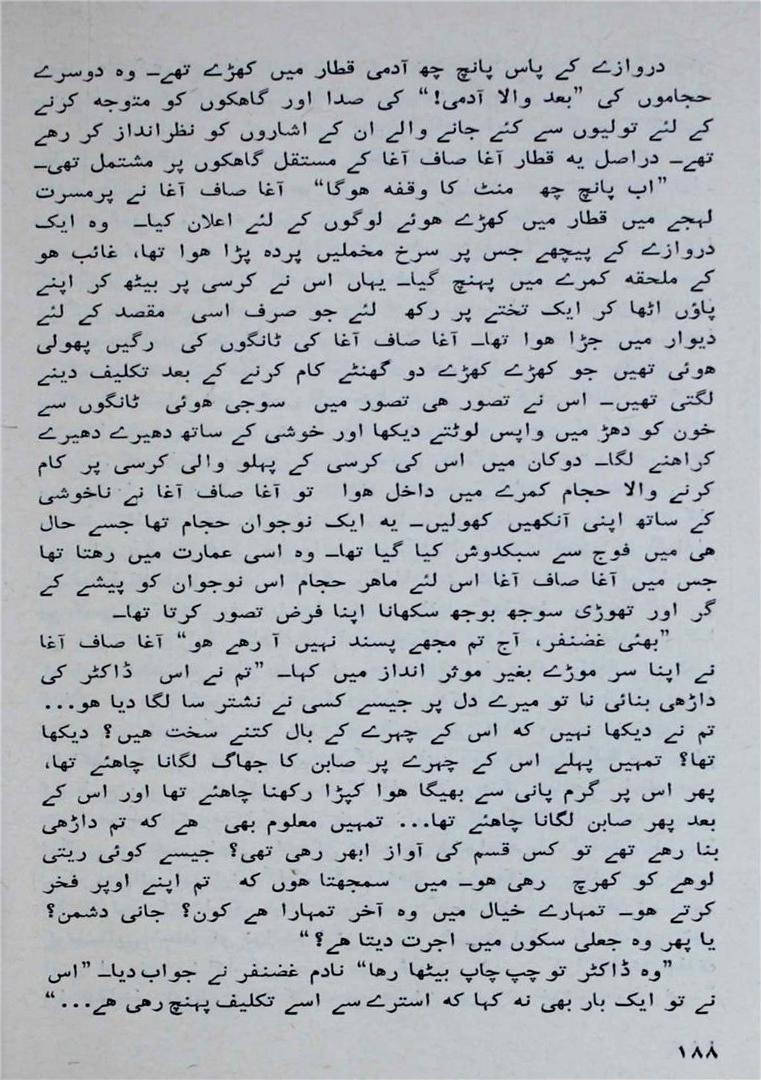 دروازے کے پاس پانچ چھ آدمی قطار میں کھڑے تھے۔ وہ دوسرے
حجاموں کی ”بعد والا آدمی!“ کی صدا اور گاھکوں کو متوجه کرنے
کے لئے تولیوں سے کئے جانے والے ان کے اشاروں کو نظرانداز کر رھے
تھے۔ دراصل یه قطار آغا صاف آغا کے مستقل گاھکوں پر مشتمل تھی۔
”اب پانچ چھ منٹ کا وقفه ھوگا“ آغا صاف آغا نے پرمسرت
لہجے میں قطار میں کھڑے ھوئے لوگوں کے لئے اعلان کیا۔ وہ ایک
دروازے کے پیچھے جس پر سرخ مخملیں پردہ پڑا ھوا تھا، غائب ھو
کے ملحقه کمرے میں پہنچ گیا۔ یہاں اس نے کرسی پر بیٹھ کر اپنے
پاؤں اٹھا کر ایک تختے پر رکھ لئے جو صرف اسی مقصد کے لئے
دیوار میں جڑا ھوا تھا۔ آغا صاف آغا کی ٹانگوں کی رگیں پھولی
ھوئی تھیں جو کھڑے کھڑے دو گھنٹے کام کرنے کے بعد تکلیف دینے
لگتی تھیں۔ اس نے تصور ھی تصور میں سوجی ھوئی ٹانگوں سے
خون کو دھڑ میں واپس لوٹتے دیکھا اور خوشی کے ساتھ دھیرے دھیرے
کراھنے لگا۔ دوکان میں اس کی کرسی کے پہلو والی کرسی پر کام
کرنے والا حجام کمرے میں داخل ھوا تو آغا صاف آغا نے ناخوشی
کے ساتھ اپنی آنکھیں کھولیں۔ یه ایک نوجوان حجام تھا جسے حال
ھی میں فوج سے سبکدوش کیا گیا تھا۔ وہ اسی عمارت میں رھتا تھا
جس میں آغا صاف آغا اس لئے ماھر حجام اس نوجوان کو پیشے کے
گر اور تھوڑی سوجھ بوجھ سکھانا اپنا فرض تصور کرتا تھا۔
”بھئی غضنفر، آج تم مجھے پسند نہیں آ رھے ھو“ آغا صاف آغا
نے اپنا سر موڑے بغیر موثر انداز میں کہا۔ ”تم نے اس ڈاکٹر کی
داڑھی بنائی نا تو میرے دل پر جیسے کسی نے نشتر سا لگا دیا ھو...
تم نے دیکھا نہیں که اس کے چہرے کے بال کتنے سخت ھیں؟ دیکھا
تھا؟ تمہیں پہلے اس کے چہرے پر صابن کا جھاگ لگانا چاھئے تھا،
پھر اس پر گرم پانی سے بھیگا ھوا کپڑا رکھنا چاھئے تھا اور اس کے
بعد پھر صابن لگانا چاھئے تھا... تمہیں معلوم بھی ھے که تم داڑھی
بنا رھے تھے تو کس قسم کی آواز ابھر رھی تھی؟ جیسے کوئی ریتی
لوھے کو کھرچ رھی ھو۔ میں سمجھتا ھوں که تم اپنے اوپر فخر
کرتے ھو۔ تمہارے خیال میں وہ آخر تمہارا ھے کون؟ جانی دشمن؟
یا پھر وہ جعلی سکوں میں اجرت دیتا ھے؟“
”وہ ڈاکٹر تو چپ چاپ بیٹھا رھا“ نادم غضنفر نے جواب دیا۔ ”اس
نے تو ایک بار بھی نه کہا که استرے سے اسے تکلیف پہنچ رھی ھے...“
۱۸۸